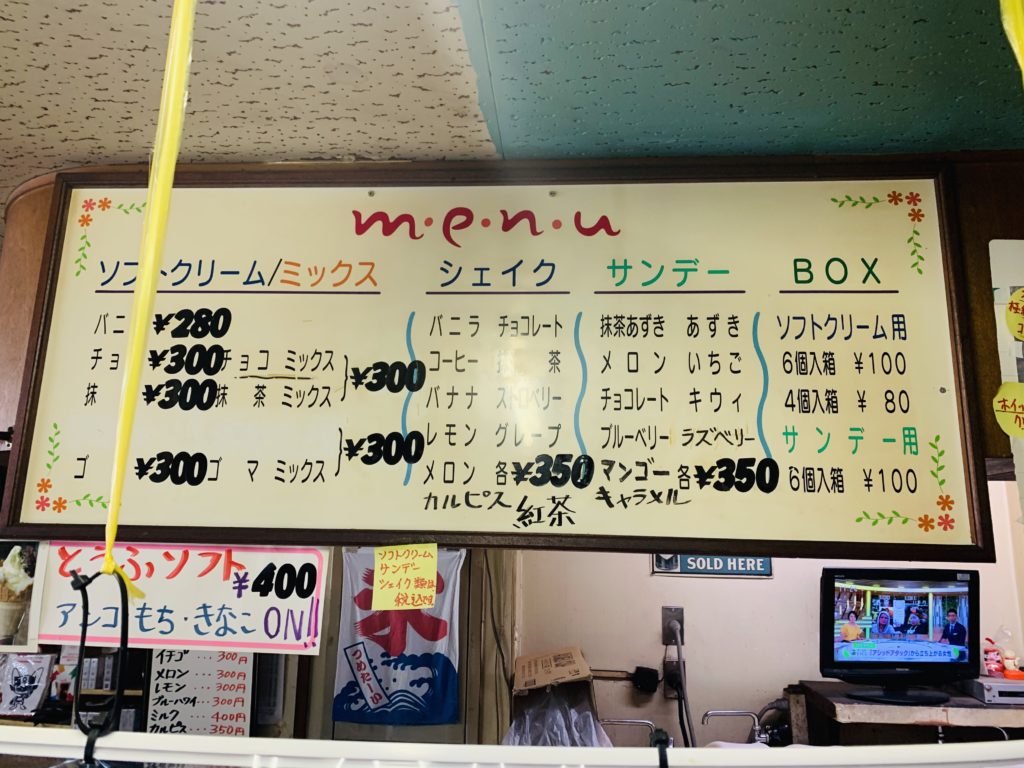 m・e・n・u
ソフトクリーム/ミックス
バニ ¥280
チョ ¥300 チョコ ミックス
抹 ¥300 抹 茶 ミックス
¥300
ゴ ¥300 ゴ マ ミックス
¥300
シェイク
バニラ チョコレート
コーヒー 抹 茶
バナナ ストロベリー
レモン グレープ
メロン 各 ¥350
カルピス 紅茶
サンデー
抹茶あずき あずき
メロン いちご
チョコレート キウィ
ブルーベリー ラズベリー
マンゴー 各 ¥350
キャラメル
BOX
ソフトクリーム用
6個入箱 ¥100
4個入箱 ¥ 80
サンデー用
6個入箱 ¥100
とうふソフト
¥400
アンコ もち・きなこ ON!!
イチゴ ... 300円
メロン ... 300円
レモン ... 300円
ブルーハワイ ... 300円
ミルク ... 400円
カルピス ... 350円
ソフトクリーム
サンデー
シェイク類は
税込です
氷
つめたーい
SOLD HERE
「アシッドアタック」から立ち上がる女性